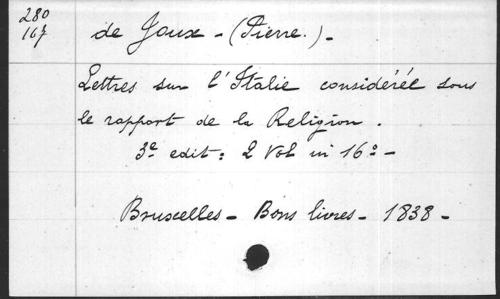 280
167
de Joux - (Pierre.) -
Lettres sur l'Italie considérée sous
le rapport de la Religion.
3e edit: 2 Vol in 16o -
Bruxelles - Bons livres - 1838 -